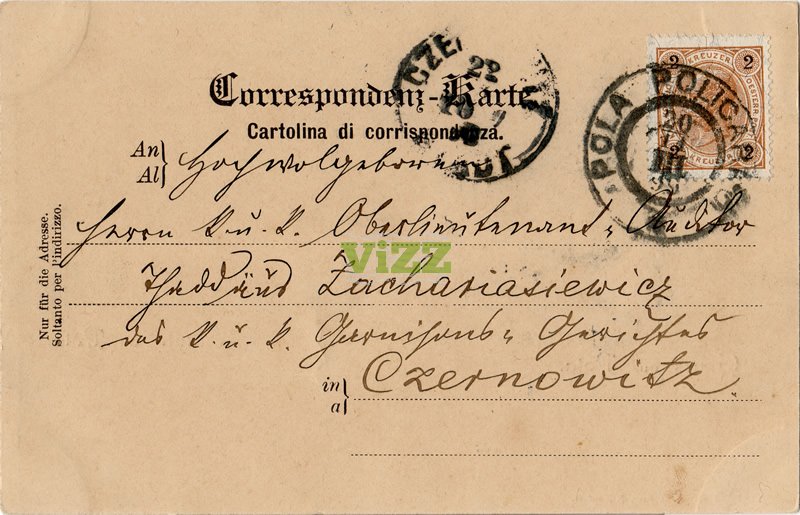 Correspondenz-Karte
Cartolina di corrispondenza.
An
Al
Hochwolgeboren
Herrn k. u. k. Oberlieutenant-Auditor
Thaddäus Zachariasiewicz
des k. u. k. Garnisons-Gerichtes
in
a
Czernowitz
Nur für die Adresse.
Soltanto per l'indirizzo.
POLA POLICARPO
20
CZE
22
2 KREUZER 2
OESTERR
2 KREUZER 2
ViZZ